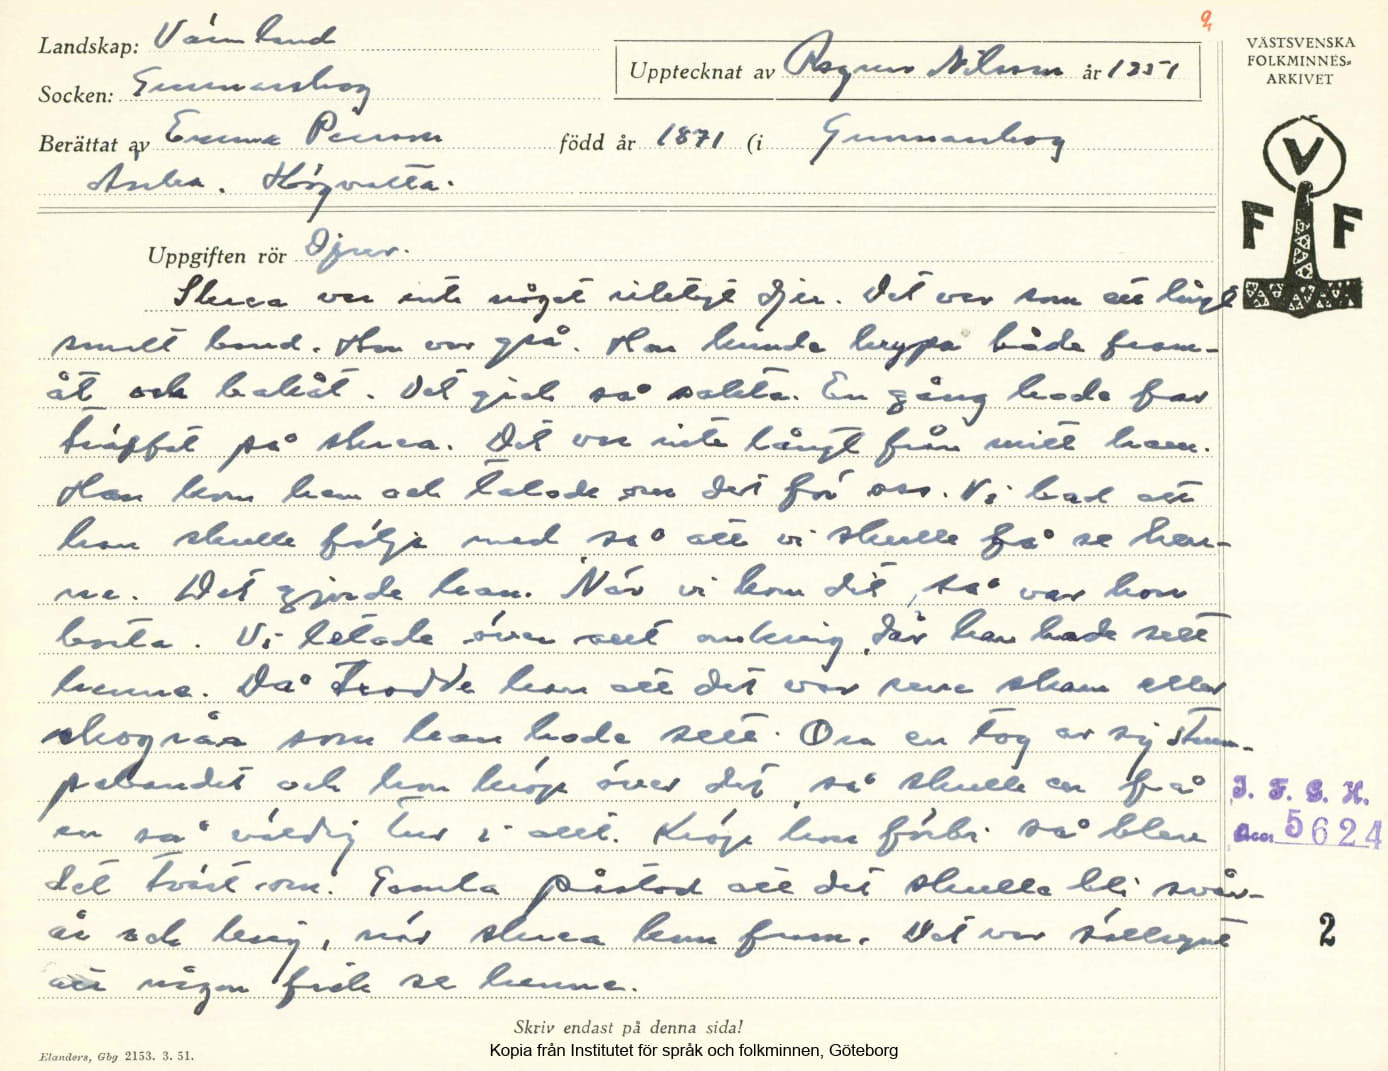 9
Landskap: Värmland
Upptecknat av Ragnar Nilsson år 1951
VÄSTSVENSKA
FOLKMINNES-
ARKIVET
Socken: Gunnarskog
Berättat av Emma Persson född år 1871 (i Gunnarskog
Högvalta.
V
F F
Uppgiften rör Djur.
Skrea var inte något riktigt djur. Det var som ett långt
smalt band. Hon var grå. Hon kunde krypa både fram-
åt och bakåt. Det gick så sakta. En gång hade far
träffat på skrea. Det var inte långt från mitt hem.
Han kom hem och talade om det för oss. Vi bad att
han skulle följa med så att vi skulle få se hen-
ne. Det gjorde han. När vi kom dit, så var hon
borta. Vi letade över allt omkring, där han hade sett
henne. Då trodde han att det var rena skam eller
skogråa som han hade sett. Om en tog av sig strum-
pebandet och hon kröp över det, så skulle en få
en så väldig tur i allt. Kröp hon förbi så blev
det tvärt om. Gamla påstod att det skulle bli svår-
år och krig, när skrea kom fram. Det var sällsynt
att någon fick se henne.
I. F. G. H.
Acc. 5624
2
Skriv endast på denna sida!
Elanders, Gbg 2153. 3. 51.
Kopia från Institutet för språk och folkminnen, Göteborg